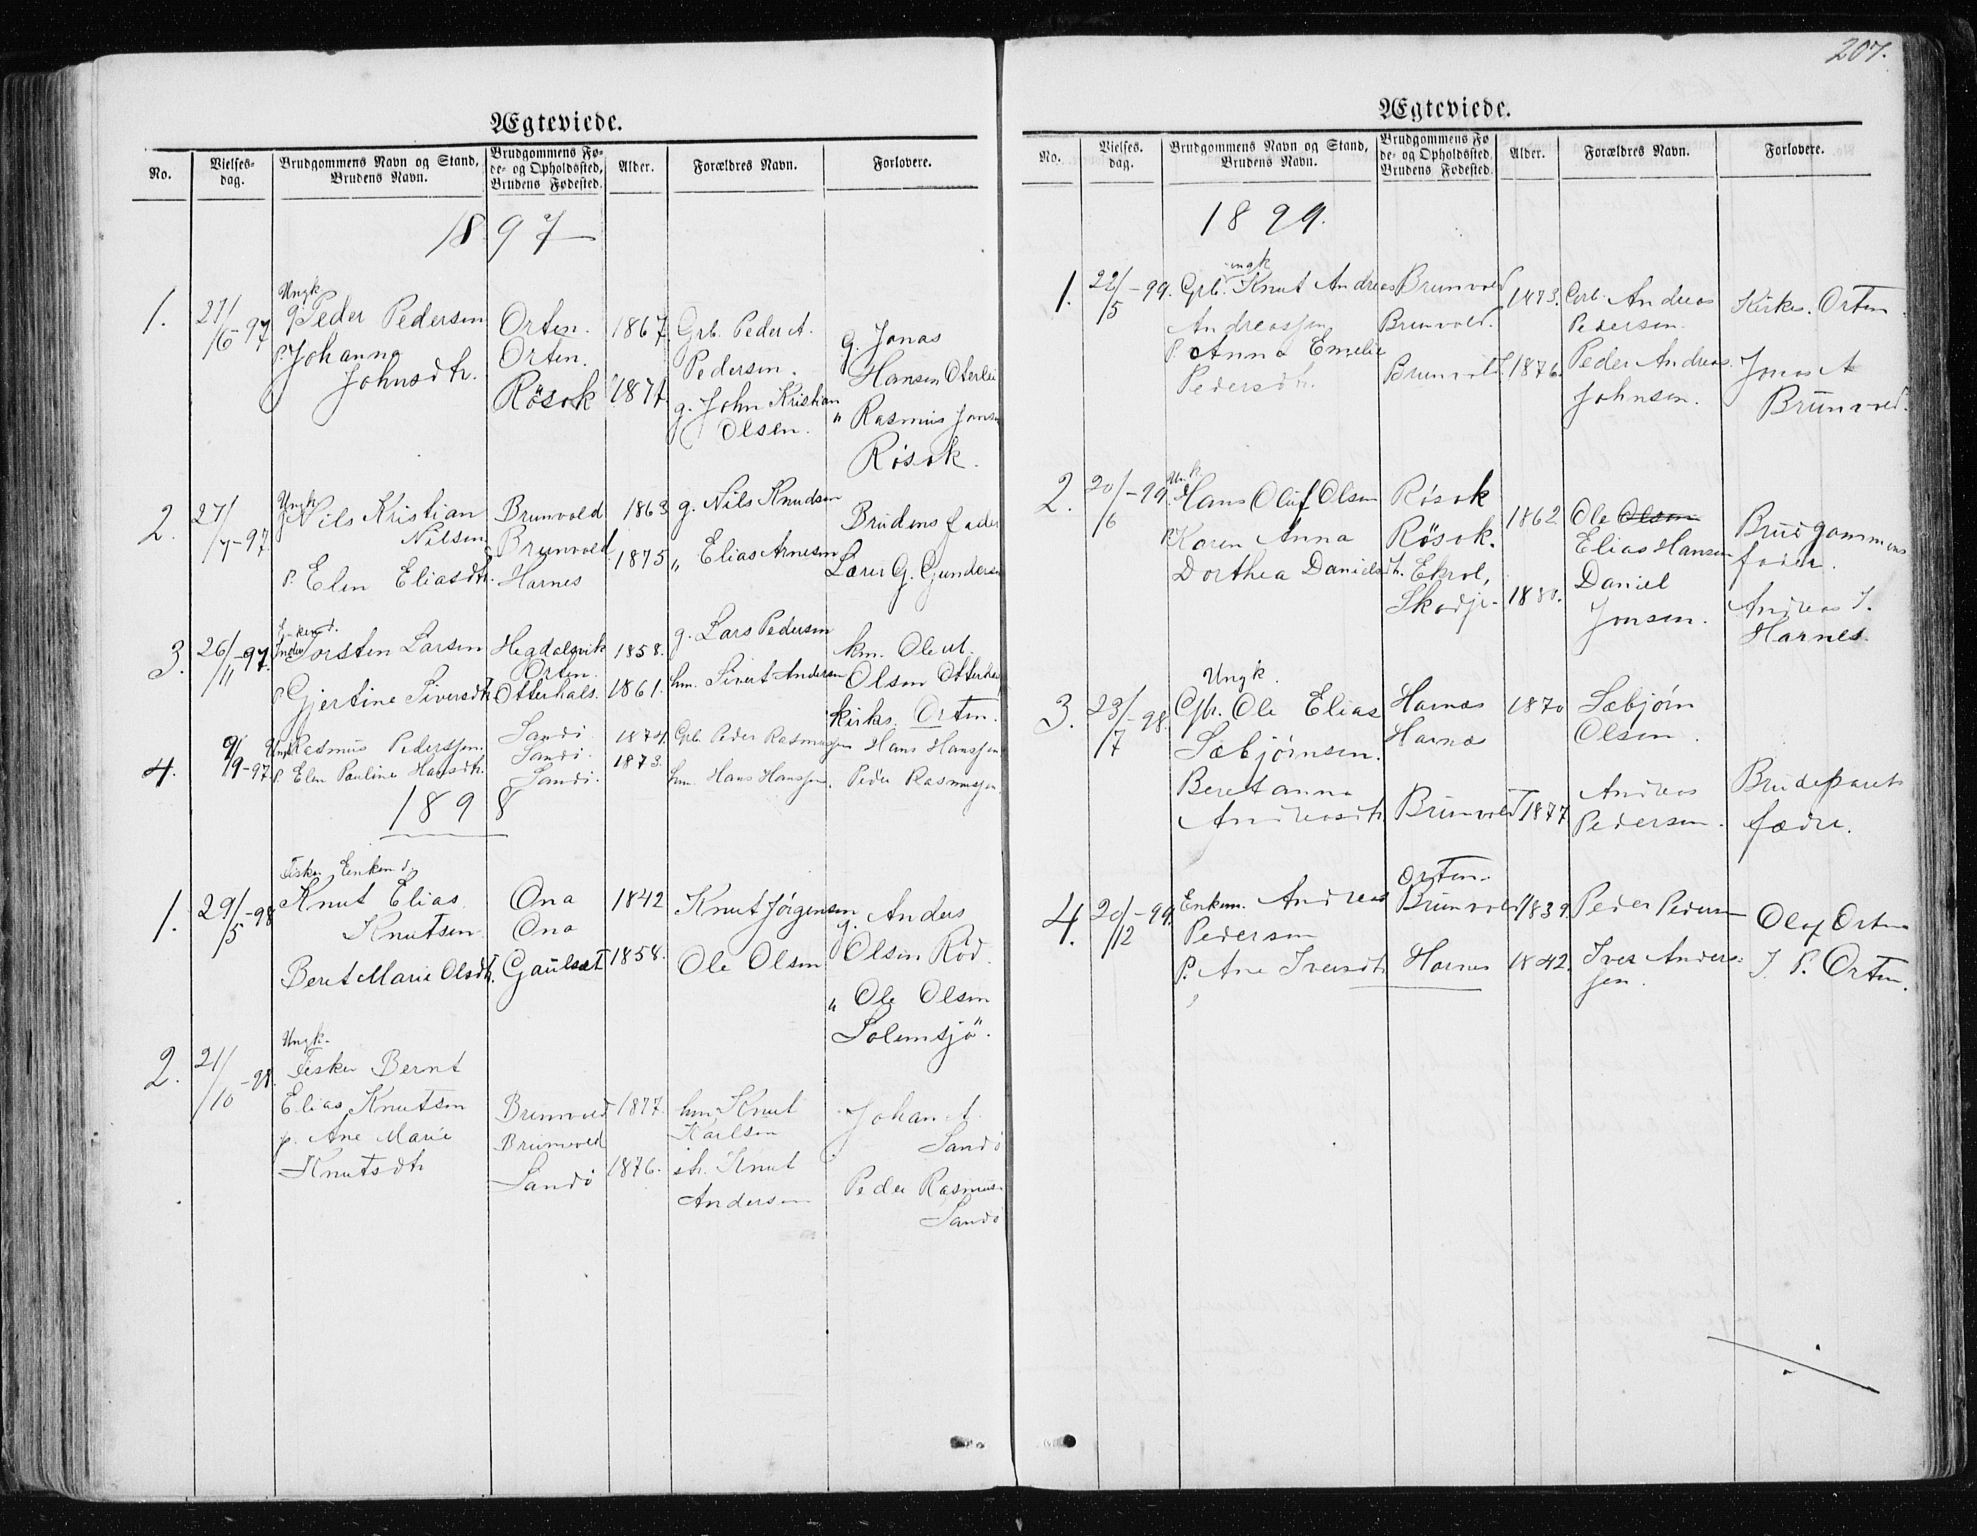 Ægteviede.
No.
Vielses-
dag.
Brudgommens Navn og Stand,
Brudens Navn.
Brudgommens Fø-
de- og Opholdssted,
Brudens Fødested.
Alder.
Forældres Navn.
Forlovere.
1897
1.
27/6-97
Ungk
g Peder Pedersen
p Johanna
Johnsdtr.
Orten.
Orten.
Røsok
1867
1871
Grb. Peder A.
Pedersen.
g. John Kristian
Olsen.
g. Jonas
Hansen Oterlei
" Rasmus Jonsen
Røsok.
2.
27/7-97
Ungk
Nils Kristian
Nilsen
p. Elen Eliasdtr.
Brunvold
Brunvold
Harnes
1863
1875
g. Nils Knudsen
„ Elias Arnesen
Brudens fader
Lærer G. Gundersen
3.
26/11-97
Torsten Larsen
p Gjertine Siversdtr
Hegdalsvik
Orten.
Otterhals.
1858.
1861.
g. Lars Pedersen
hm. Sivert Andersen
km. Ole M.
Olsen Otterhals
kirks. Orten.
4.
9/9-97
Ungk Rasmus Pederssen.
p. Elen Pauline Hansdtr.
Sandö.
Sandö.
Sandö.
1874.
1873.
Grb. Peder Rasmussen
hm. Hans Hanssen.
Hans Hanssen
Peder Rasmussen.
1898
1.
29/5-98
Fisker Enkemd.
Knut Elias
Knutsen
Beret Marie Olsdtr.
Ona
Ona
Gaulset
1842
1858.
Knut Jörgensen
Ole Olsen
g. Anders
Olsen Röd.
„ Ole Olsen
Solemsjö".
2.
21/10-98.
Ungk.
Fisker Bernt
Elias Knutsen
p. Ane Marie
Knutsdtr
Brunvold
Brunvold
Sandö
1877.
1876.
hm Knut
Karlsen
str. Knut
Andersen
Johan A.
Sandö
Peder Rasmus-
Sandö
207.
Ægteviede.
No.
Vielses-
dag.
Brudgommens Navn og Stand,
Brudens Navn.
Brudgommens Fø
de- og Opholdssted,
Brudens Fødested.
Alder.
Forældres Navn.
Forlovere.
1899.
1.
22/5-99.
ungk
Grb. Knut Andreas
Andreassen
p. Anna Emelie
Pedersdtr.
Brunvold
Brunvold.
Brunvold.
1873.
1876.
Grb. Andreas
Pedersen.
Peder Andreas
Johnsen.
Kirkes. Orten.
Jonas A
Brunvold.
2.
20/6-99.
Hans Oluf Olsen
p. Karen Anna
Dorthea Danielsdtr.
Røsok
Røsok.
Ekrol,
Skodje-
1862.
1880.
Ole Olsen
Elias Hansen
Daniel
Jonsen.
Brudgommens
fader.
Andreas J.
Harnes.
3.
23/7-98.
Ungk.
Gbr. Ole Elias
Sæbjørnsen.
Beretanna
Andreasdtr.
Harnes
Harnes
Brunvold
1870
1877
Sæbjørn
Olsen.
Andreas
Pedersen.
Brudeparets
fædre.
4.
20/12-99.
Enkem. Andreas
Pedersen
p. Ane Iversdtr
Orten.
Brunvold
Harnes
1839.
1842.
Peder Pedersen
Iver Anders-
sen.
Olaf Orten
J. P. Orten.